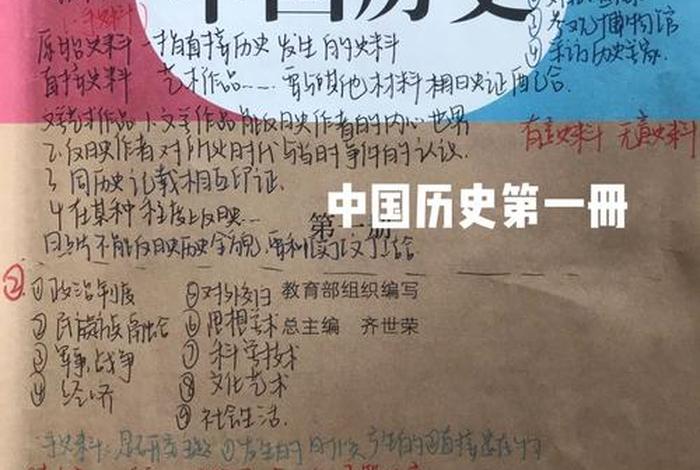 中国历史
③参观博物馆
④采访历史专家
原始史料—指直接历史发生的史料
直接史料 艺术作品……要与其他材料相印证配合
文学艺术作品 1.文学作品能反映作者的内心世界
有意史料 无意史料
2.反映作者对所处时代与当时事件的认识.
3.同历史记载相互印证.
中国历史第一冊
4.在某种程度上反映…
第一册
照片不能反映历史全貌
② ①政治制度 ⑤对外交往 教育部组织编写
②民族交融 ⑥思想学术 总主编 齐世荣
③军事战争 ⑦科学技术
④经济 ⑧文化艺术
⑨社会生活.